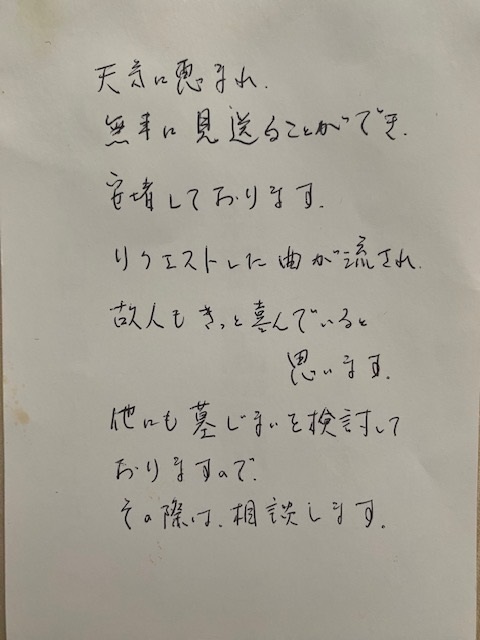 天気に恵まれ、
無事に見送ることができ、
安堵しております。
リクエストした曲が流され、
故人もきっと喜んでいると
思います。
他にも墓じまいを検討して
おりますので、
その際は、相談します。